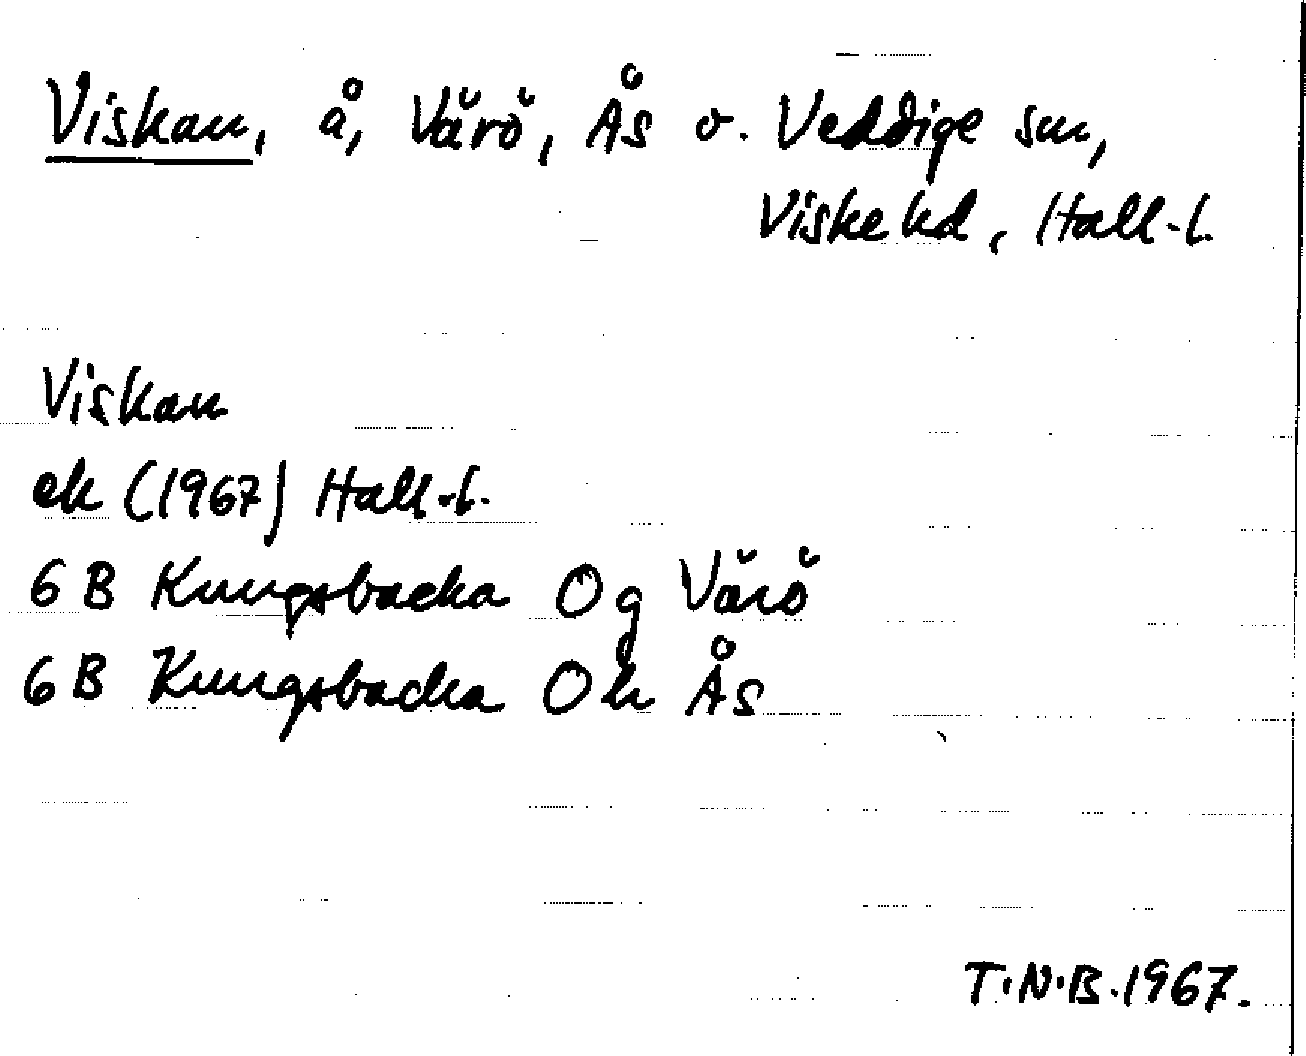 Viskan, å, Värö, Ås o. Veddige sn,
Viske hd, Hall.l.
Viskan
ek (1967) Hall.l.
6 B Kungsbacka 0g Värö
6 B Kungsbacka 0h Ås
T.N.B.1967.